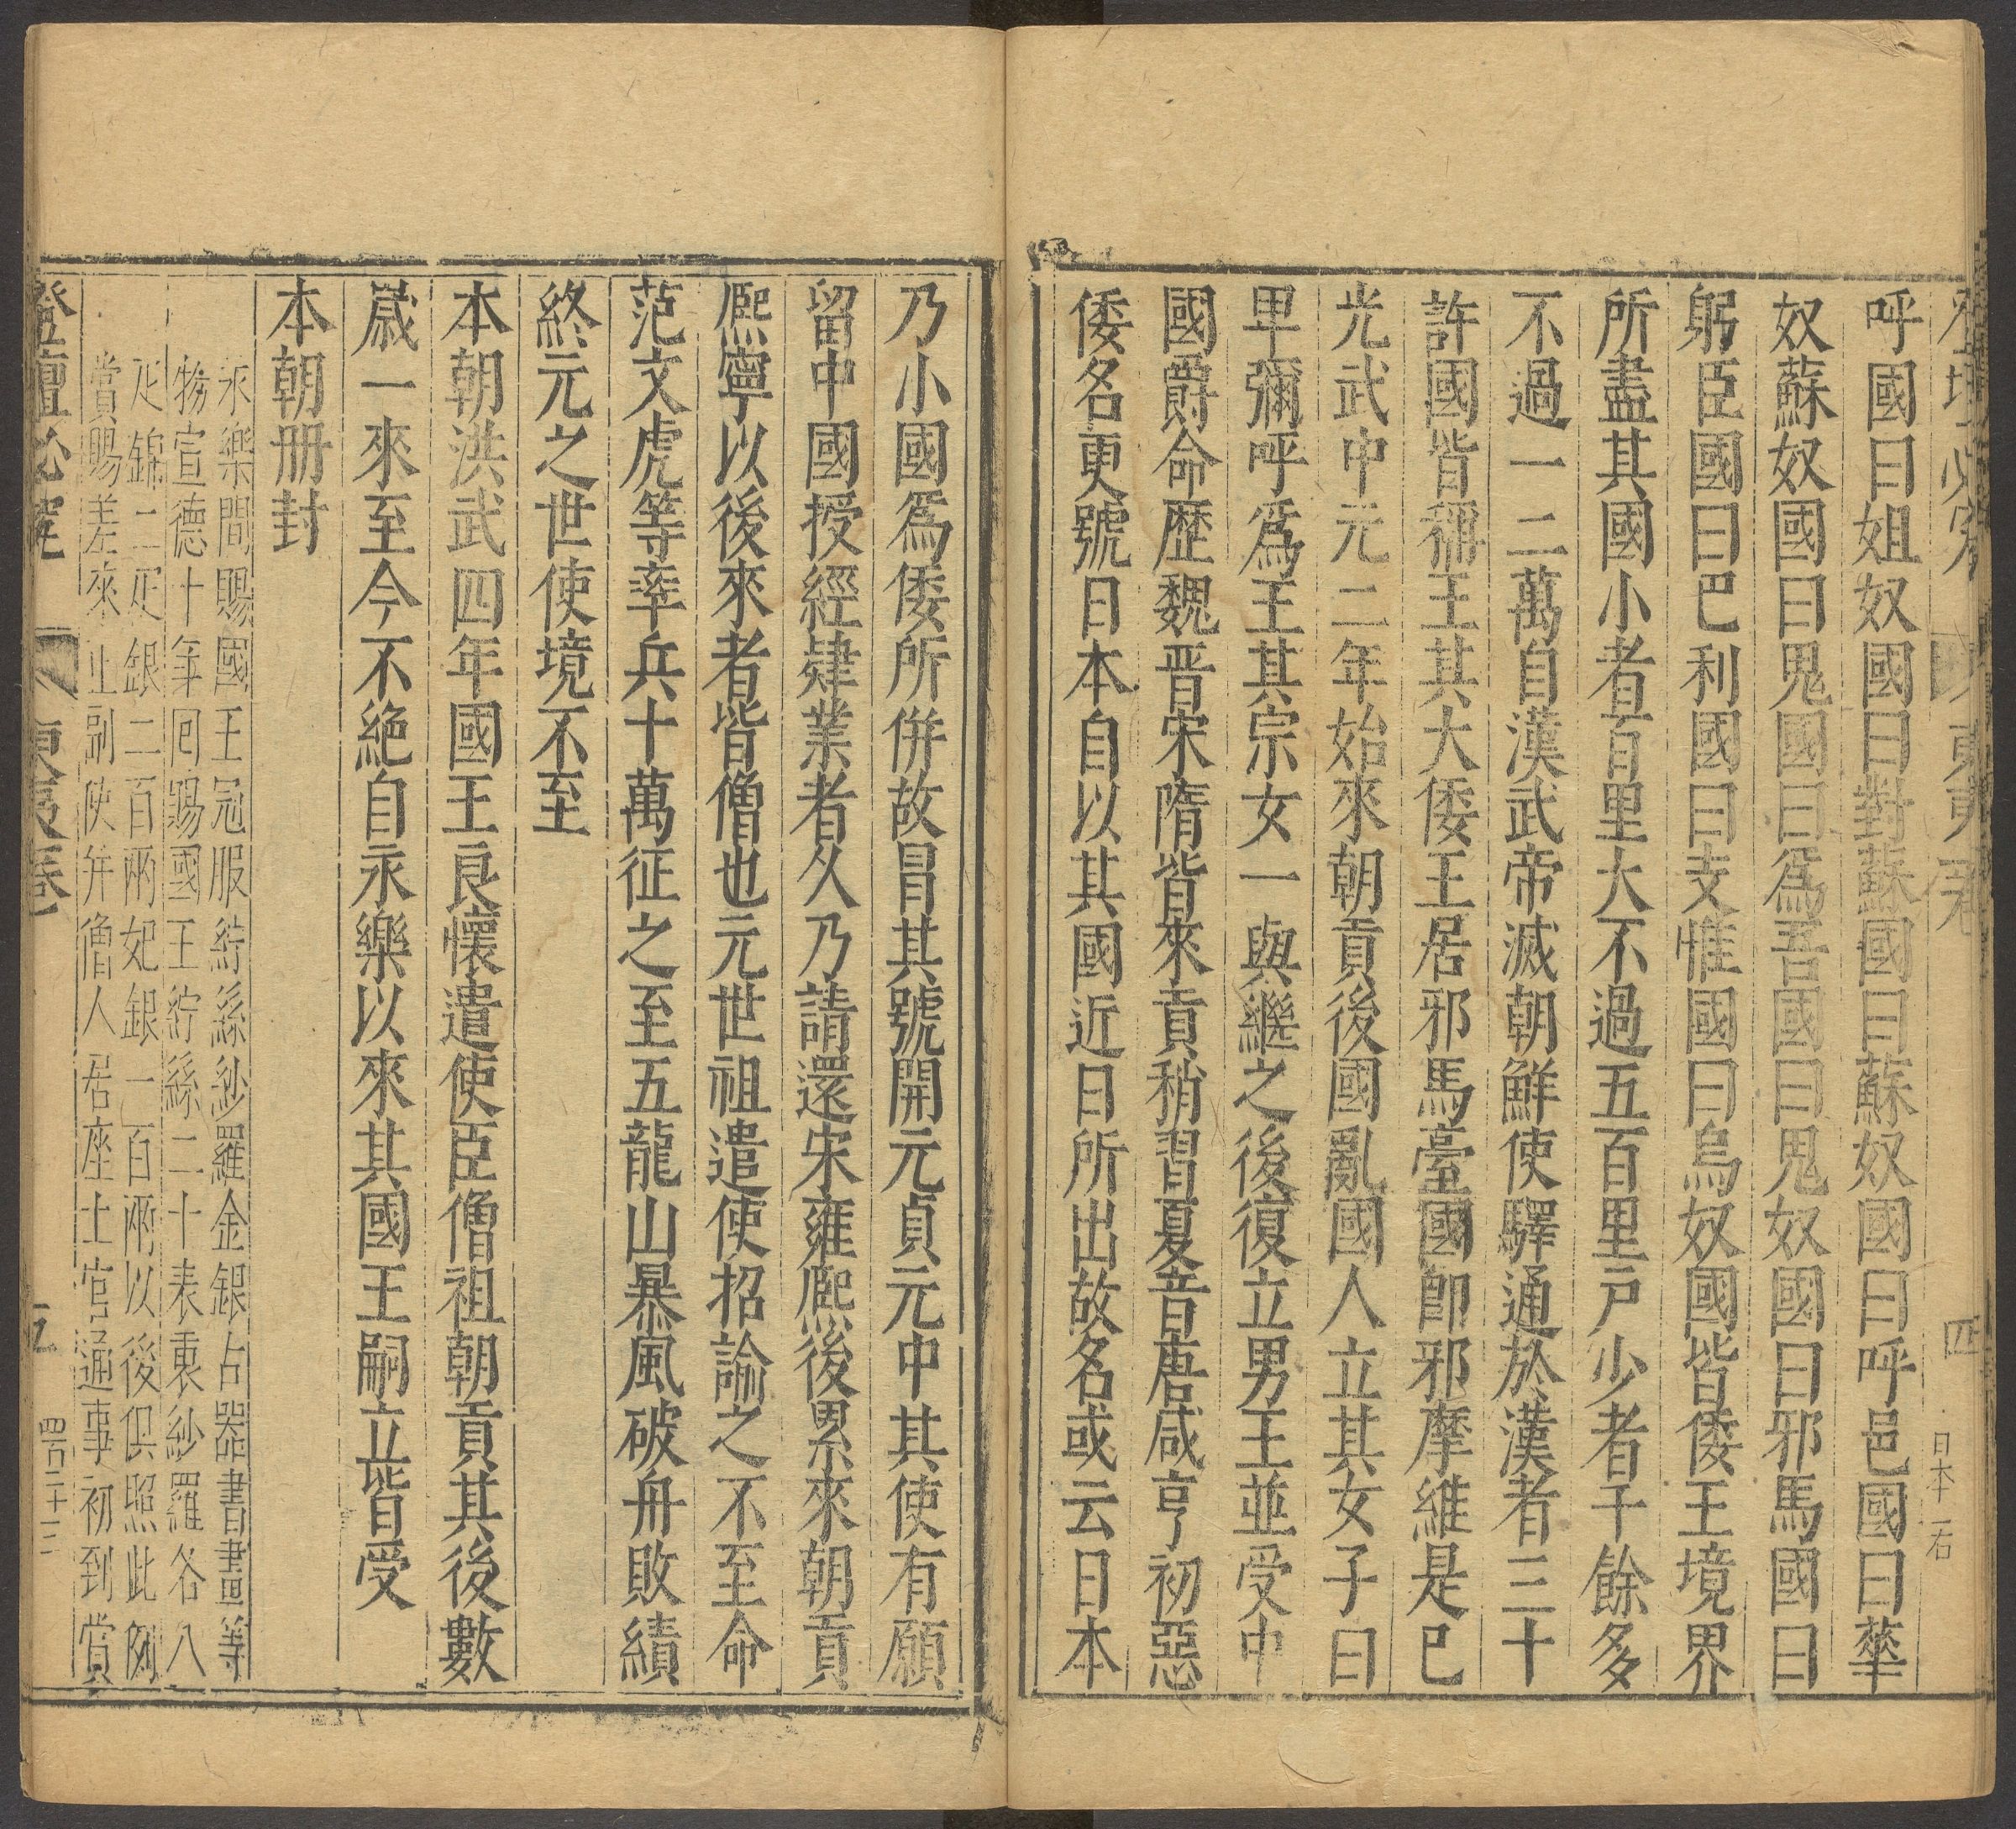 東夷卷 四 日本 右
呼國曰姐奴國曰對蘇國曰蘇奴國曰呼邑國曰華
奴蘇奴國曰鬼國曰爲吾國曰鬼奴國曰邪馬國曰
躬臣國曰巴利國曰支惟國曰烏奴國皆倭王境界
所盡其國小者百里大不過五百里戶少者千餘多
不過一二萬自漢武帝滅朝鮮使驛通於漢者三十
許國皆稱王其大倭王居邪馬臺國卽邪摩維是已
光武中元二年始來朝貢後國亂國人立其女子曰
卑彌呼爲王其宗女一與繼之後復立男王並受中
國爵命歷魏晋宋隋皆來貢稍習夏音唐咸亨初惡
倭名更號日本自以其國近日所出故名或云日本
乃小國爲倭所併故冒其號開元貞元中其使有願
留中國授經肄業者久乃請還宋雍熈後累來朝貢
熈寧以後來者皆僧也元世祖遣使招諭之不至命
范文虎等率兵十萬征之至五龍山暴風破舟敗績
終元之世使境不至
本朝洪武四年國王良懷遣使臣僧祖朝貢其後數
歲一來至今不絕自永樂以來其國王嗣立皆受
本朝册封
永樂間賜國王冠服紵絲紗羅金銀古器書畫等
物宣德十年回賜國王紵絲二十表裏紗羅各八
疋錦二疋銀二百兩妃銀一百兩以後俱照此例
賞賜差來正副使并僧人居座土官通事初到賞
登壇必究 東夷卷 五 四百二十三